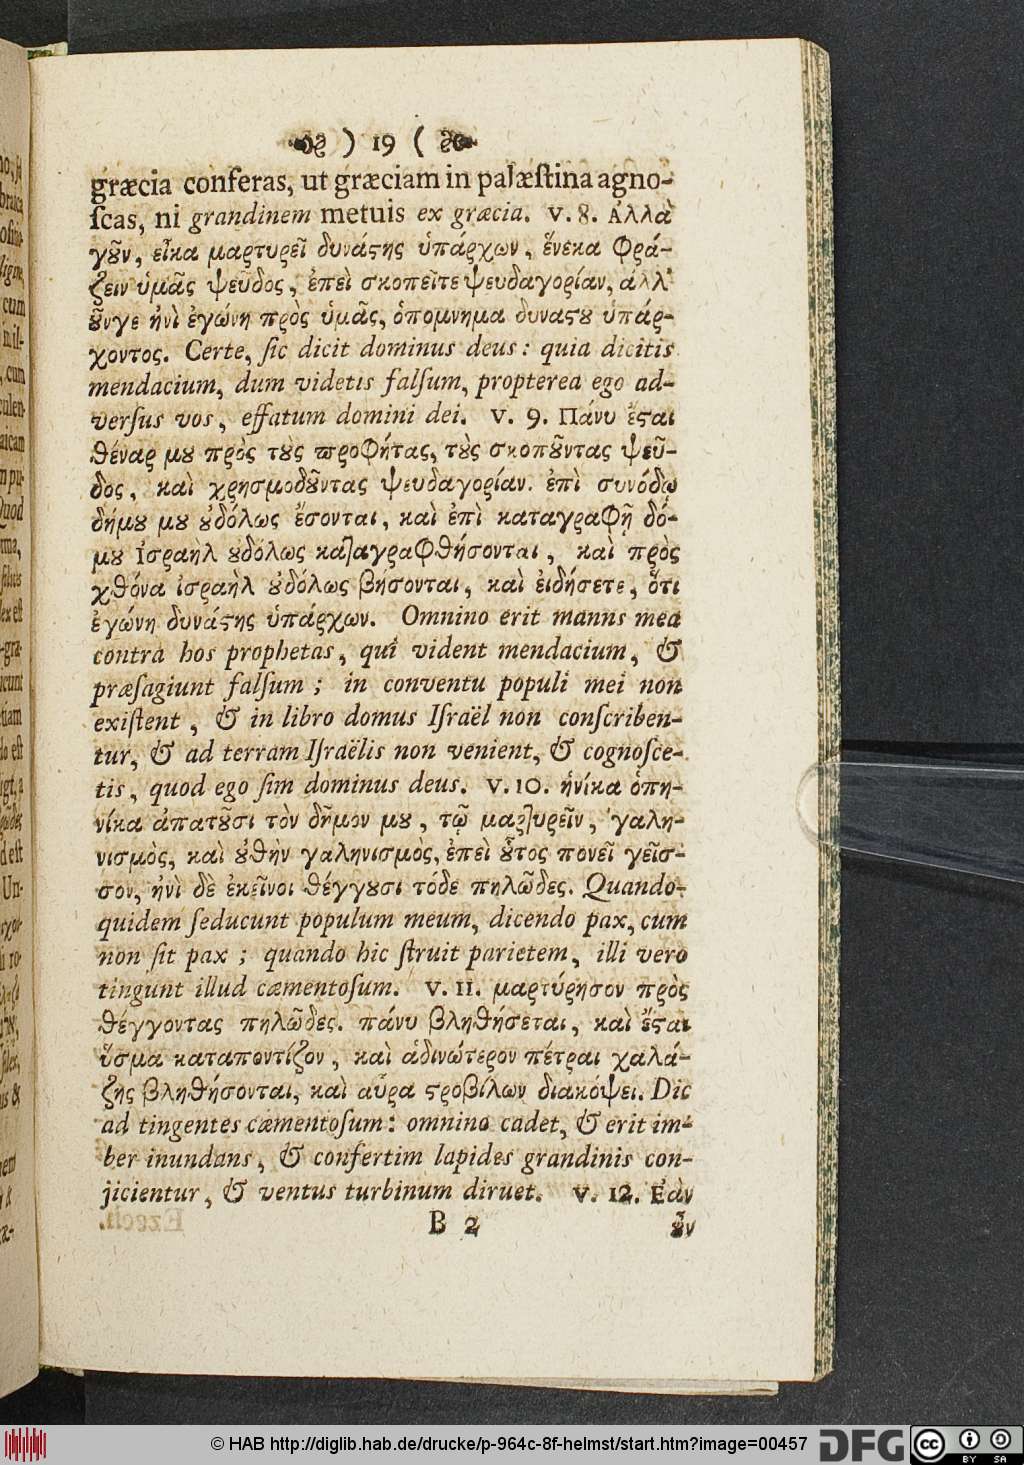 ) 19 (
græcia conferas, ut græciam in palæſtina agno-
ſcas, ni grandinem metuis ex græcia. v. 8. Αλλὰ
γȣ͂ν, εἶκα μαρτυρεῖ δυνάϛης ὑπάρχων, ἕνεκα Φρά-
ζειν ὑμᾶς ψεῦδος, ἐπεὶ σκοπεῖτε ψευδαγορίαν, ἀλλ'
ȣ͂νγε ἠνὶ ἐγώνη πρὸς ὑμᾶς, ὁπομνημα δυναϛȣ ὑπάρ-
χοντος. Certe, ſic dicit dominus deus: quia dicitis
mendacium, dum videtis falſum, propterea ego ad-
verſus vos, effatum domini dei. v. 9. Πάνυ ἔϛαι
θέναρ μȣ πρὸς τȣ̀ς ϖροΦήτας, τȣ̀ς σκοπȣ͂ντας ψεῦ-
δος, καὶ χρησμοδȣ͂ντας ψευδαγορίαν. ἐπὶ συνόδῳ
δήμȣ μȣ ȣ̓δόλως ἔσονται, καὶ ἐπὶ καταγραΦῇ δό-
μȣ Ἰσραὴλ ȣδόλως καταγραΦθήσονται, καὶ πρὸς
χθόνα ἰσραὴλ ȣ̓δόλως βήσονται, καὶ ἐιδήσετε, ὅτι
ἐγώνη δυνάϛης ὑπάρχων. Omnino erit manns mea
contra hos prophetas, qui vident mendacium, &
præſagiunt falſum; in conventu populi mei non
exiſtent, & in libro domus Iſraël non conſcriben-
tur, & ad terram Iſraëlis non venient, & cognoſce-
tis, quod ego ſim dominus deus. v. 10. ἡνίκα ὁπη-
νίκα ἀπατȣ͂σι τὸν δῆμον μȣ, τῷ μαρτυρεῖν, γαλη-
νισμὸς, καὶ ȣ̓θὴν γαληνισμὸς, ἐπεὶ ȣ̓͂τος πονεῖ γεῖσ-
σον, ἠνὶ δὲ ἐκεῖνοι θέγγȣσι τόδε πηλῶδες. Quando-
quidem ſeducunt populum meum, dicendo pax, cum
non ſit pax; quando hic ſtruit parietem, illi vero
tingunt illud cæmentoſum. v. 11. μαρτύρησον πρὸς
θέγγοντας πηλῶδες. πάνυ βληθήσεται, καὶ ἔϛαι
ὕσμα καταποντίζον, καὶ ἁδινώτερον πέτραι χαλά-
ζης βληθήσονται, καὶ αὖρα ϛροβίλων διακόψει. Dic
ad tingentes cæmentoſum: omnino cadet, & erit im-
ber inundans, & confertim lapides grandinis con-
jicientur, & ventus turbinum diruet. v. 12. Ἐὰν
B 2 ȣ̓͂ν
© HAB http://diglib.hab.de/drucke/p-964c-8f-helmst/start.htm?image=00457 DFG cc BY SA